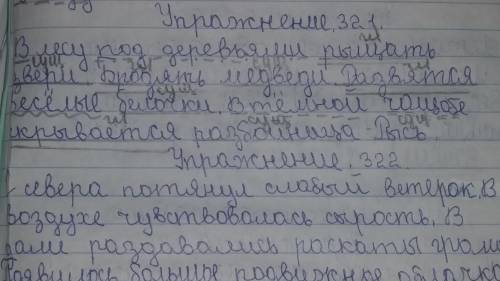 Упражнение. 321.
В лесу под деревьями рыщать
звери. Бродять медведи. Резвятся
весёлые белочки. В тёмной чащобе
скрывается разбойница - Рысь.
Упражнение. 322.
С севера потянул слабый ветерок. В
воздухе чувствовалась сырость. В
дали раздавались раскаты грома
Появилось большое подвижное облачко